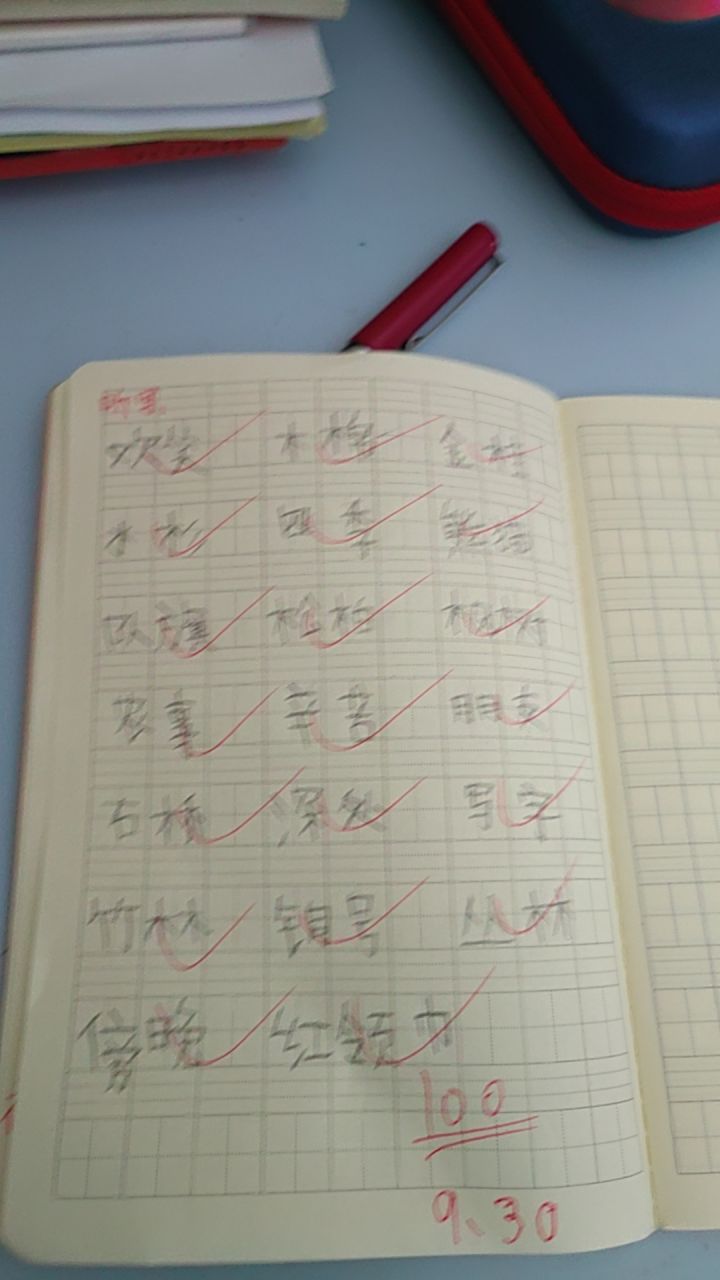 听写
欢笑 木棉 金桂
水杉 四季 熟悉
队旗 松柏 枫树
农事 辛苦 朋友
石桥 深处 写字
竹林 领号 丛林
傍晚 红领巾
100
9.30